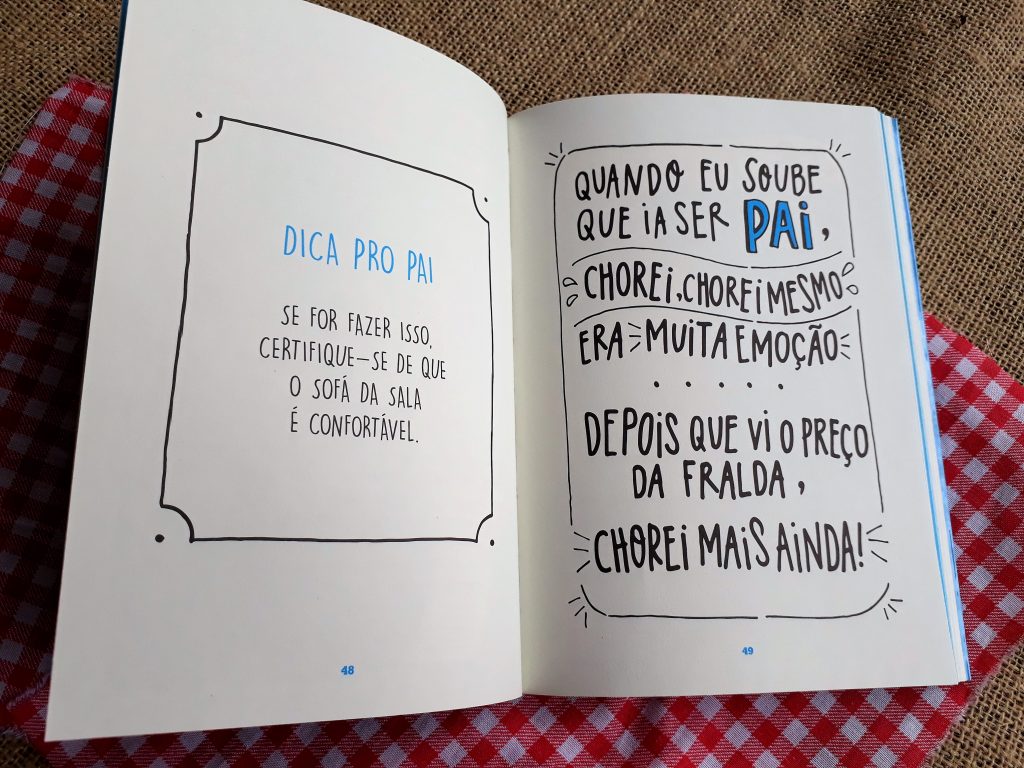 DICA PRO PAI
SE FOR FAZER ISSO,
CERTIFIQUE-SE DE QUE
O SOFÁ DA SALA
É CONFORTÁVEL.
48
QUANDO EU SOUBE
QUE IA SER PAI,
CHOREI, CHOREI MESMO
ERA MUITA EMOÇÃO
.....
DEPOIS QUE VI O PREÇO
DA FRALDA,
CHOREI MAIS AINDA!
49